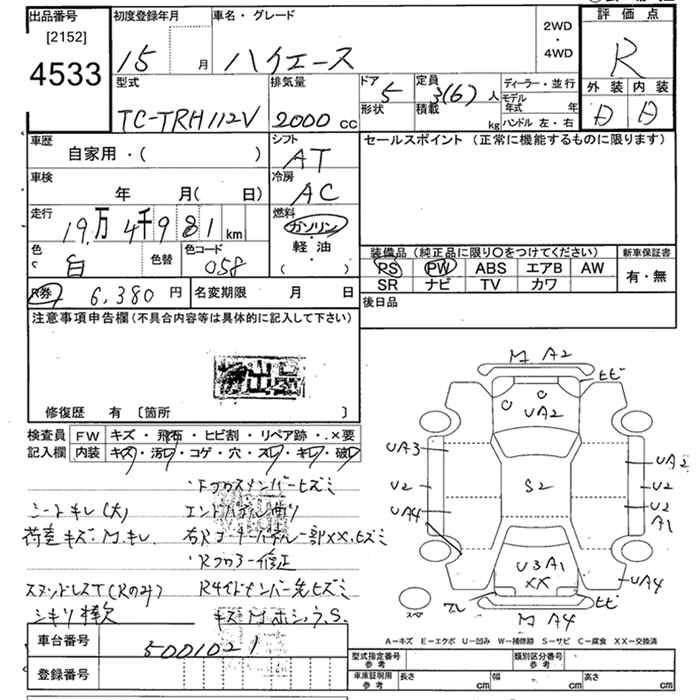 出品番号
[2152]
4533
初度登録年月
15 月
車名・グレード
ハイエース
2WD
・
4WD
評価点
R
外装 内装
D D
型式
TC-TRH112V
排気量
2000 cc
ドア 5
形状
定員 3(6) 人
積載 kg
ディーラー・並行
モデル年式 年
ハンドル 左・右
車歴
自家用・( )
シフト
AT
セールスポイント(正常に機能するものに限ります)
車検
年 月( 日)
冷房
AC
走行
19万4千981 km
燃料
ガソリン
・
軽油
( )
色
白
色替
色コード
058
装備品(純正品に限り○をつけてください)
PS PW ABS エアB AW
SR ナビ TV カワ
新車保証書
有・無
R券 6,380 円
名変期限 月 日
後日品
注意事項申告欄(不具合内容等は具体的に記入して下さい)
修復歴 有 〔箇所 〕
検査員記入欄
FW キズ・飛石・ヒビ割・リペア跡・×要
内装 キズ・汚レ・コゲ・穴・スレ・キレ・破レ
シートキレ(大)
荷室キズ・M.キレ
エンドパネル曲り
Rフロアー修正
M A2
ヒビ
UA2
UA3
UA2
U2
S2
U2
UA4
U2
A1
U3A1
XX
UA4
ヒビ
M A4
A-キズ E-エクボ U-凹み W-補修跡 S-サビ C-腐食 XX-交換済
車台番号
5001021
登録番号
型式指定番号
参考
類別区分番号
参考
車庫証明用
参考
長さ cm
幅 cm
高さ cm